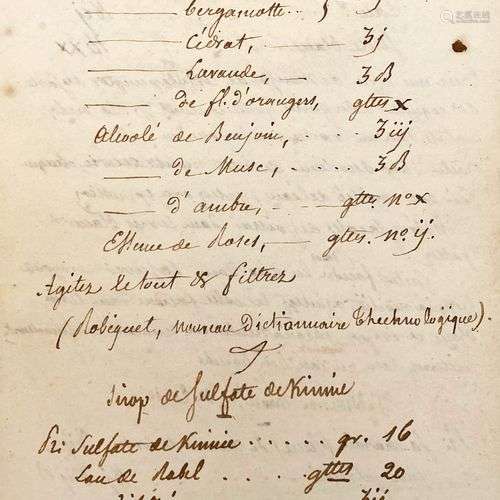 Bergamotte.. ʒ j
—— Cédrat, — ʒ j
—— Lavande, — ʒ ß
—— de fl. d'orangers, gttes x
Alcoolé de Benjoin, ʒ iij
—— de Musc, .... ʒ ß
—— d'ambre, — gttes. n.º x
Essence de Roses, — gttes. n.º ij.
Agitez le tout & filtrez
(Robiquet, nouveau Dictionnaire Thechnologique).
Sirop de Sulfate de Kinine
Pr: Sulfate de Kinine ..... gr. 16
Eau de Rabel .... gttes 20